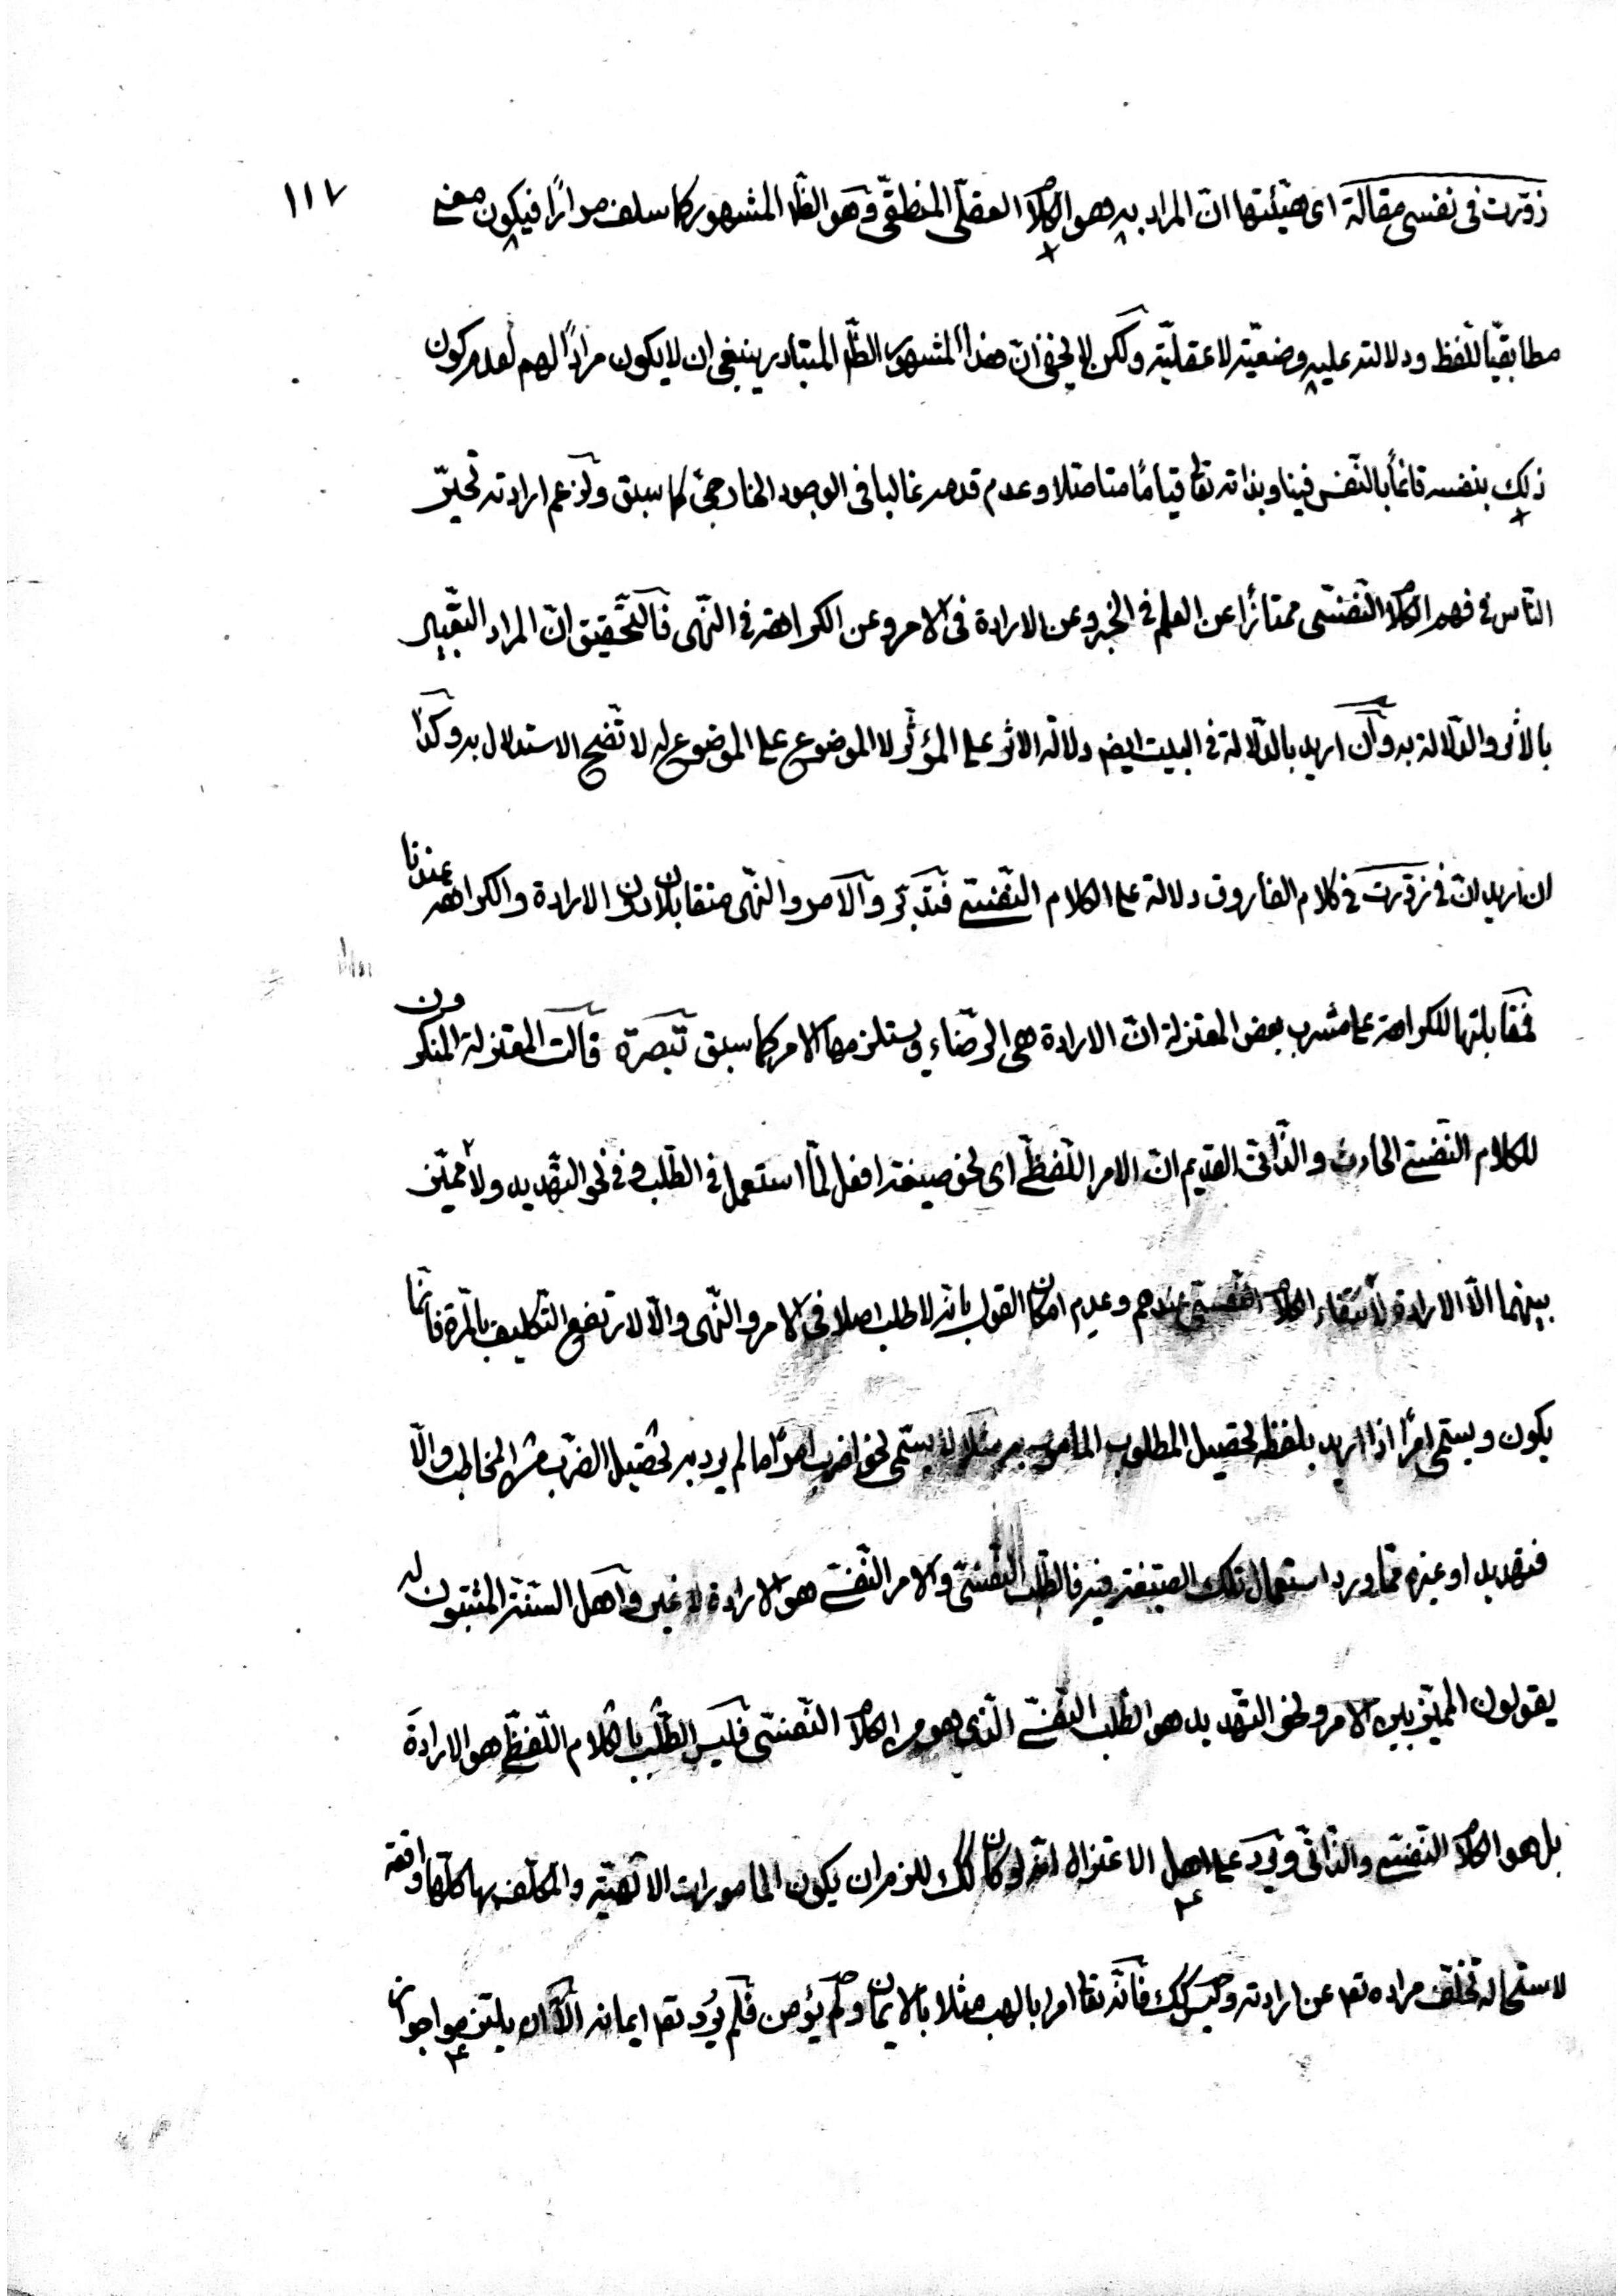 ١١٧
زوّرت في نفسي مقالة اى هيّئتها انّ المراد به هو الكلام العقلىّ المنطقىّ وهو الظّ المشهور كما سلف مرارًا فيكون معنى
مطابقيّا للّفظ ودلالته عليه وضعيّة لا عقليّة ولكن لا يخفى انّ هذا المشهور الظّ المتبادر ينبغي ان لا يكون مرادًا لهم لعدم كون
ذلك بنفسه قائمًا بالنّفس فينا وبذاته تعا قيامًا متاصّلا وعدم قدمه غالبا في الوجود الخارجىّ كما سبق ولزعم ارادته تحيّر
النّاس في فهم الكلام النّفسىّ ممتازًا عن العلم في الخبر وعن الارادة في الامر وعن الكراهة في النّهى فالتّحقيق انّ المراد التّعبير
بالاثر والدّلالة به وان اريد بالدّلالة في البيت ايضم دلالة الاثر على المؤثّر لا الموضوع على الموضوع له لا تّضح الاستدلال به وكذا
ان اريد انّ في زوّرت في كلام الفاروق دلالة على الكلام النّفسىّ فتدبّر والامر والنّهى متقابلان دون الارادة والكراهة عندنا
فمقابلتها للكراهة على مشرب بعض المعتزلة انّ الارادة هى الرضاء ويستلزمها الامر كما سبق تبصرة قالت المعتزلة المنكرون
للكلام النّفسىّ الحادث والذّاتى القديم انّ الامر اللّفظىّ اى نحو صيغة افعل لمّا استعمل في الطّلب وفي نحو التّهديد ولا مميّز
بينهما الّا الارادة لانتفاء الكلام النّفسىّ عندهم وعدم امكان القول بانّه لا طلب اصلا في الامر والنّهى والّا لارتفع التّكليف بالمرّة فانّما
يكون ويسمّى امرًا اذا اريد بلفظه تحصيل المطلوب المامور به مثلا لا يسمّى نحو اضرب امرًا ما لم يرد به تحصيل الضّرب من المخاطب والّا
فتهديد او غيره ممّا ورد استعمال تلك الصّيغة فيه فالطّلب النّفسىّ والامر النّفسىّ هو الارادة لا غير واهل السّنّة المثبتون له
يقولون المميّز بين الامر ونحو التّهديد هو الطّلب النّفسىّ الّذى هو من الكلام النّفسىّ فليس الطّلب بالكلام اللّفظىّ هو الارادة
بل هو الكلام النّفسىّ والذّاتى ويرد على اهل الاعتزال انّه لو كان كك للزم ان يكون المامورات الالٰهيّة والمكلّف بها كلّها واقعة
لاستحالة تخلّف مراده تعم عن ارادته وليس كك فانّه تعا امر ابا لهب مثلا بالايمان ولم يؤمن فلم يُرد تعم ايمانه الّا ان يلتزموا جواز